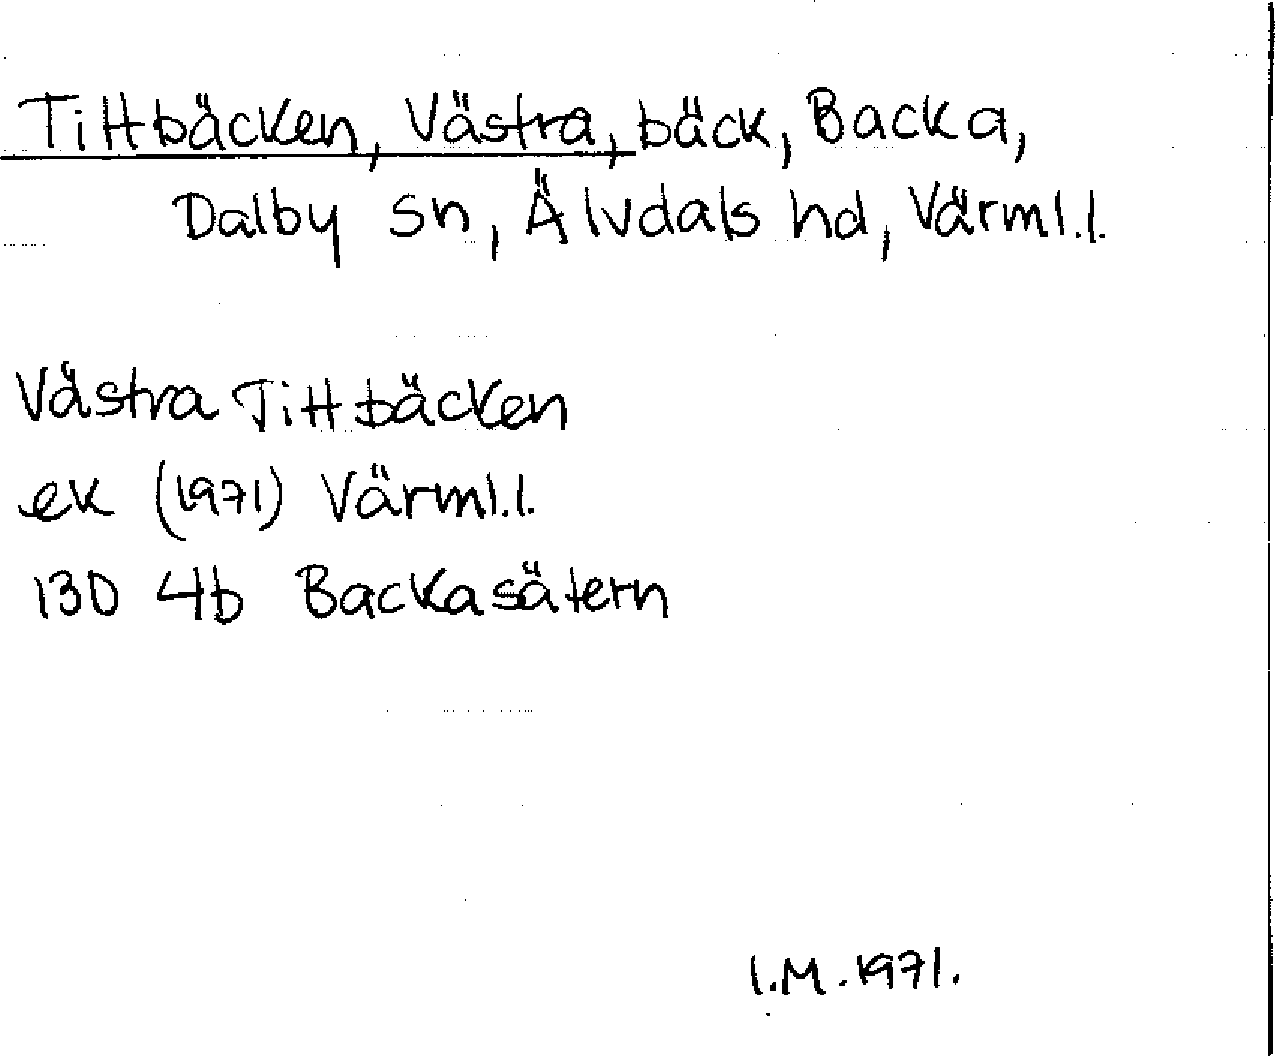 Tittbäcken, Västra, bäck, Backa,
Dalby sn, Älvdals hd, Värml.l.
Västra Tittbäcken
ek (1971) Värml.l.
130 4b Backasätern
I.M. 1971.